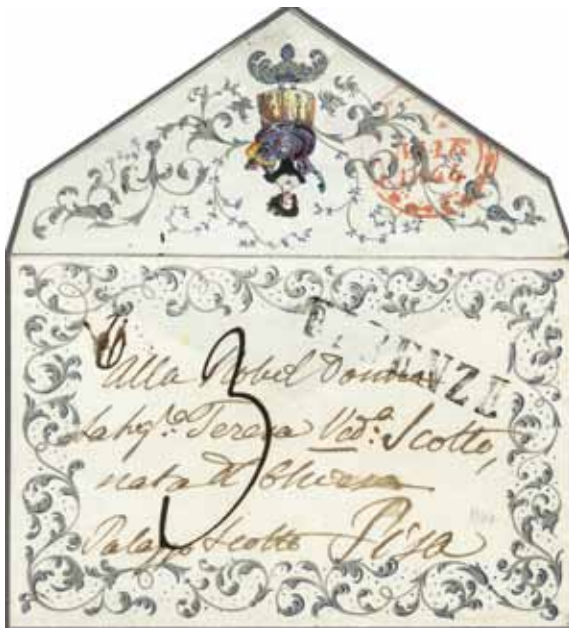 FIRENZE
3
Alla Nobil Donna
Teresa Ved.ª Scotto,
nata
Palazzo Scotto Pisa